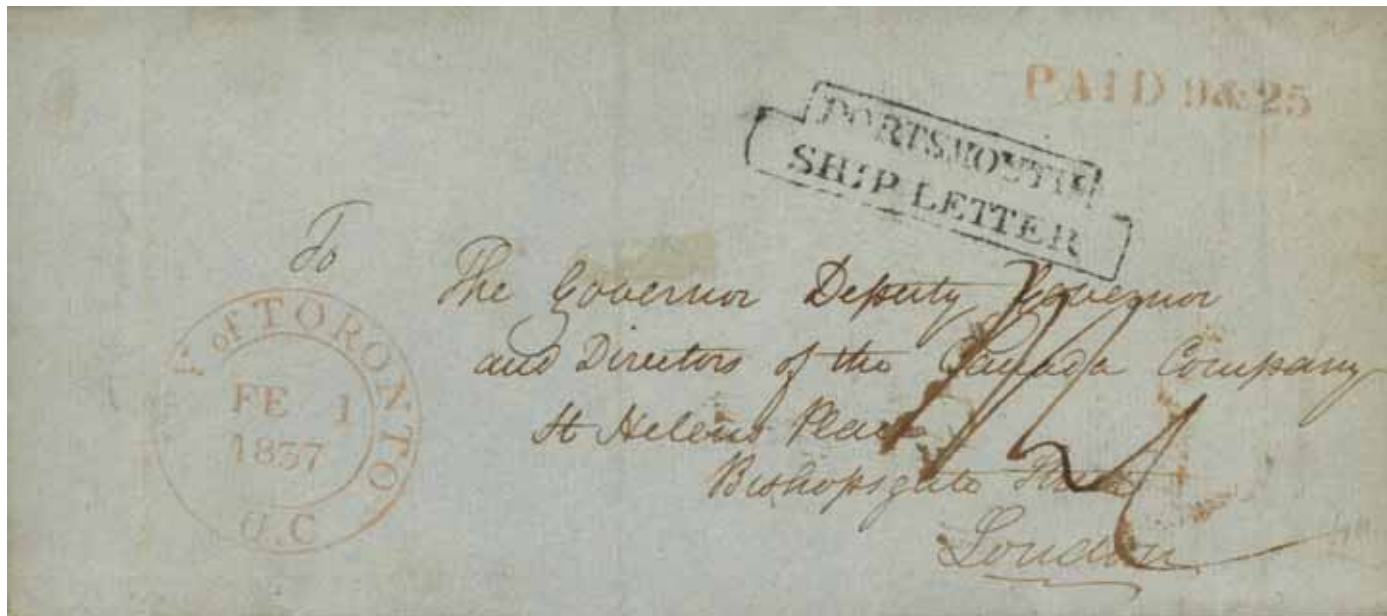 PAID 9&25
PORTSMOUTH
SHIP LETTER
To
The Governor Deputy Governor
and Directors of the Canada Company
St Helens Place
Bishopsgate
London
of TORONTO
FE 1
1837
U.C